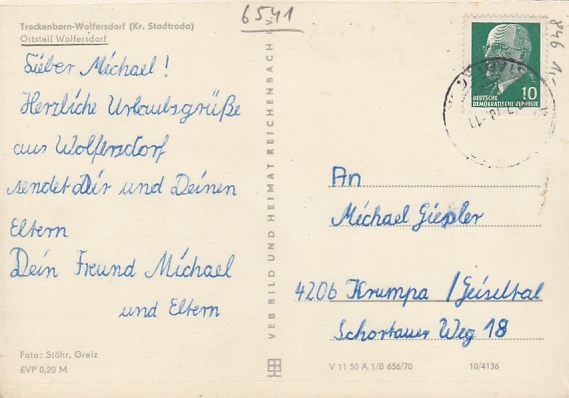 Trockenborn-Wolfersdorf (Kr. Stadtroda)
Ortsteil Wolfersdorf
6541
846
Lieber Michael!
Herzliche Urlaubsgrüße
aus Wolfersdorf
sendet Dir und Deinen
Eltern
Dein Freund Michael
und Eltern
Foto: Stöhr, Greiz
EVP 0,20 M
VEB BILD UND HEIMAT REICHENBACH I. V.
10
DEUTSCHE
DEMOKRATISCHE REPUBLIK
An
Michael Giesler
4206 Krumpa /Geiseltal
Schortauer Weg 18
V 11 50 A 1/B 656/70
10/4136